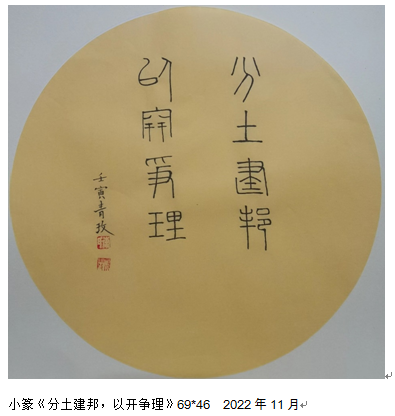 分土建邦
以開爭理
壬寅青玫
小篆《分土建邦，以开争理》69*46 2022年11月